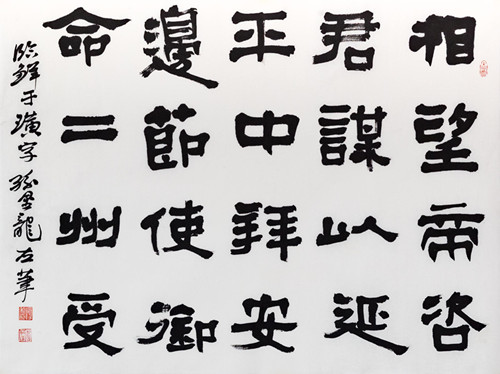 相望帝咨
君謀以延
平中拜安
邊節使御
命二州受
臨鮮于璜字孫墨龍左筆